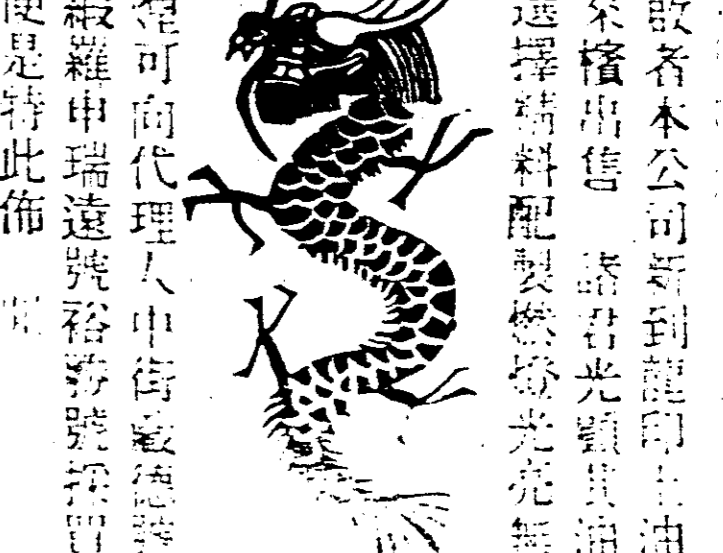 啟者本公司新到龍印士油
檳出售 諸君光顧其油
選擇精料配製燃燈光亮無
可向代理人中街嚴德
緞羅申瑞遠號裕務號採買
便是特此佈